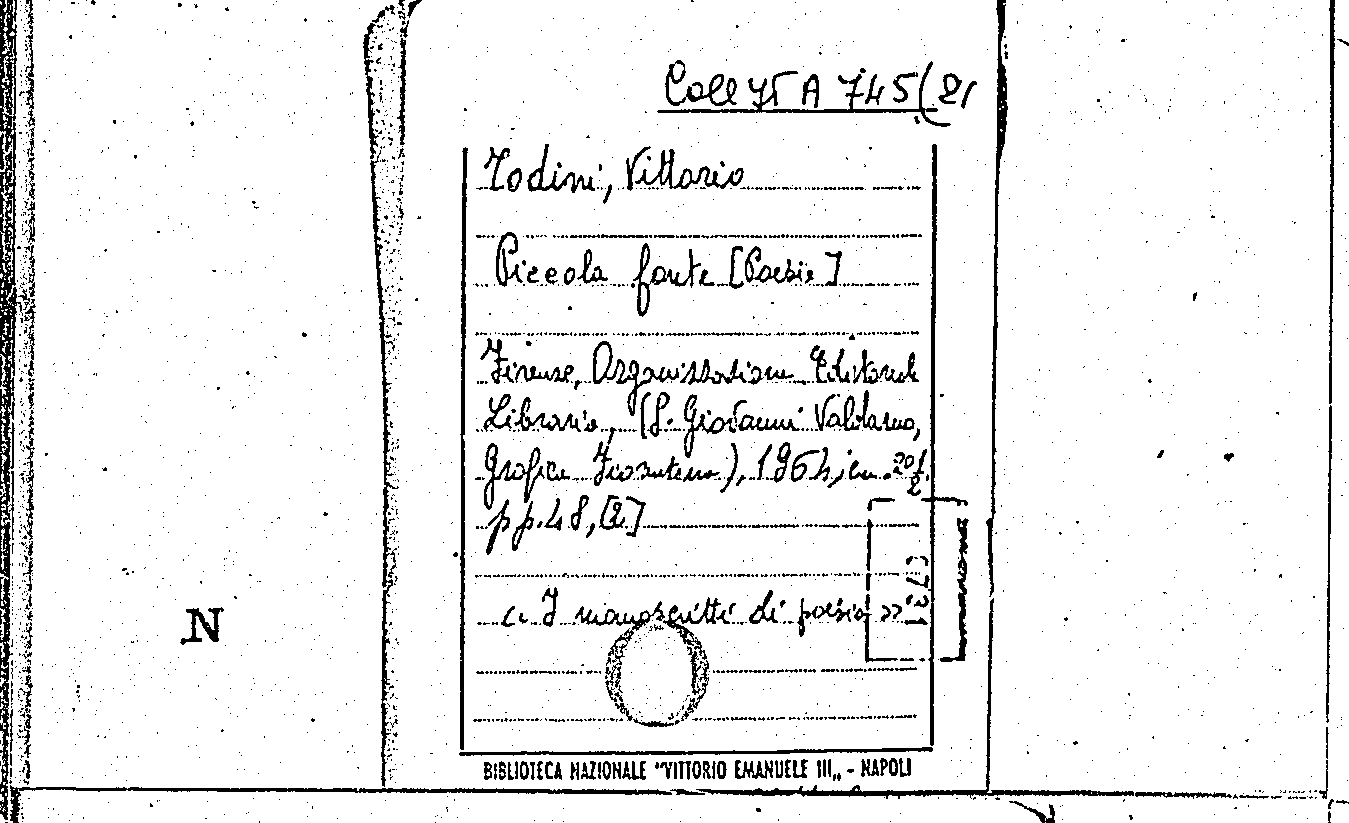 Coll 45 A 745(21
Todini, Vittorio
Piccola fonte [Poesie]
Firenze, Organizzazione Editoriale
Libraria, (S. Giovanni Valdarno,
Grafica Fiorentina), 1964, cm. 20½
pp. 48, [2]
« I manoscritti di poesia ».
N
BIBLIOTECA NAZIONALE "VITTORIO EMANUELE III„ - NAPOLI